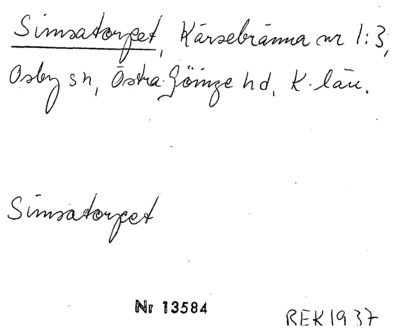 Simsatorpet, Kärsebränna nr 1:3,
Osby sn, Östra Göinge hd, K. län.
Simsatorpet
Nr 13584
REK 1937